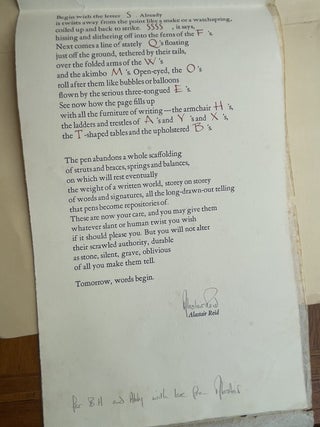 Begin with the letter S. Already
it twists away from the point like a snake or a watchspring,
coiled up and back to strike. SSSS, it says,
hissing and slithering off into the ferns of the F's.
Next comes a line of stately Q's floating
just off the ground, tethered by their tails,
over the folded arms of the W's
and the akimbo M's. Open-eyed, the O's
roll after them like bubbles or balloons
flown by the serious three-tongued E's.
See now how the page fills up
with all the furniture of writing—the armchair H's,
the ladders and trestles of A's and Y's and X's,
the T-shaped tables and the upholstered B's.
The pen abandons a whole scaffolding
of struts and braces, springs and balances,
on which will rest eventually
the weight of a written world, storey on storey
of words and signatures, all the long-drawn-out telling
that pens become repositories of.
These are now your care, and you may give them
whatever slant or human twist you wish
if it should please you. But you will not alter
their scrawled authority, durable
as stone, silent, grave, oblivious
of all you make them tell.
Tomorrow, words begin.
Alastair Reid
Alastair Reid
for B H and Abby with love from Alastair